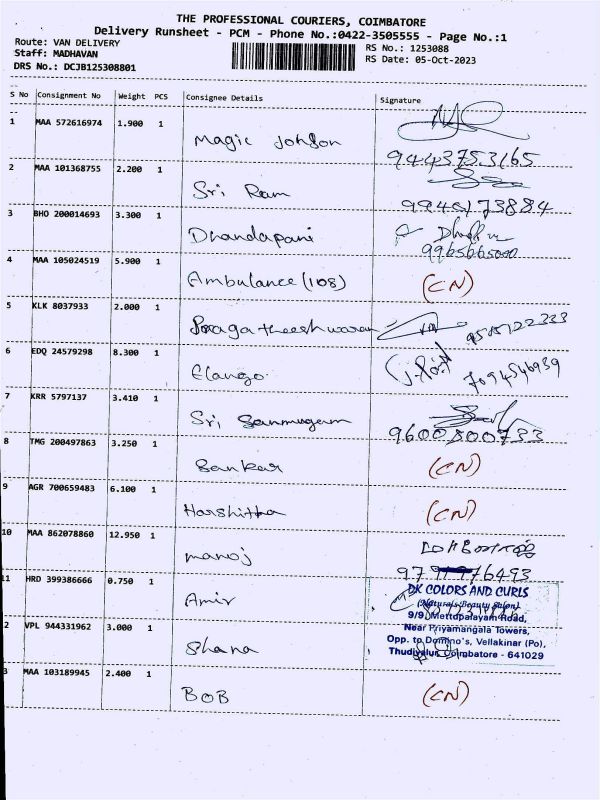 THE PROFESSIONAL COURIERS, COIMBATORE
Delivery Runsheet - PCM - Phone No.:0422-3505555 - Page No.:1
Route: VAN DELIVERY RS No.: 1253088
Staff: MADHAVAN RS Date: 05-Oct-2023
DRS No.: DCJB125308801
S No Consignment No Weight PCS Consignee Details Signature
1 MAA 572616974 1.900 1
Magic Johson
9443753165
2 MAA 101368755 2.200 1
Sri Ram
9946173884
3 BHO 200014693 3.300 1
Dhandapani
9965665000
4 MAA 105024519 5.900 1
Ambulance (108) (CN)
5 KLK 8037933 2.000 1
Pragatheeshwaran
6 EDQ 24579298 8.300 1
Elango 7094546939
7 KRR 5797137 3.410 1
Sri Sanmugam
9600800733
8 TMG 200497863 3.250 1
Sankar (CN)
9 AGR 700659483 6.100 1
Harshitha (CN)
10 MAA 862078860 12.950 1
manoj
11 HRD 399386666 0.750 1
DK COLORS AND CURLS
Amir
(Naturals Beauty Salon)
9/9, Mettupalayam Road,
2 VPL 944331962 3.000 1
Near Priyamangala Towers,
Opp. to Domino's, Vellakinar (Po),
Shana
Thudiyalur, Coimbatore - 641029
3 MAA 103189945 2.400 1
BOB (CN)